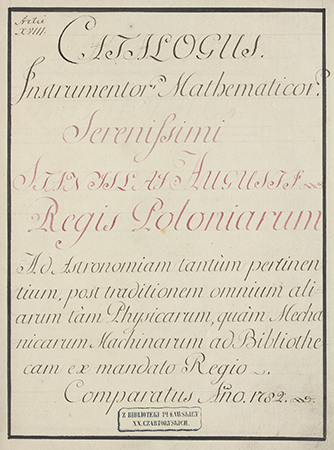 Artic
XVIII.
CATALOGUS.
Instrumentor? Mathematicor?
Serenissimi
STANISLAI AUGUSTI
Regis Poloniarum
Ad Astronomiam tantùm pertinen
tium, post traditionem omnium ali-
arum tàm Physicarum, quàm Mecha
nicarum Machinarum ad Bibliothe
cam ex mandato Regio.
Comparatus Ano. 1782.
Z BIBLIOTEKI PUŁAWSKIEJ
XX. CZARTORYSKICH.